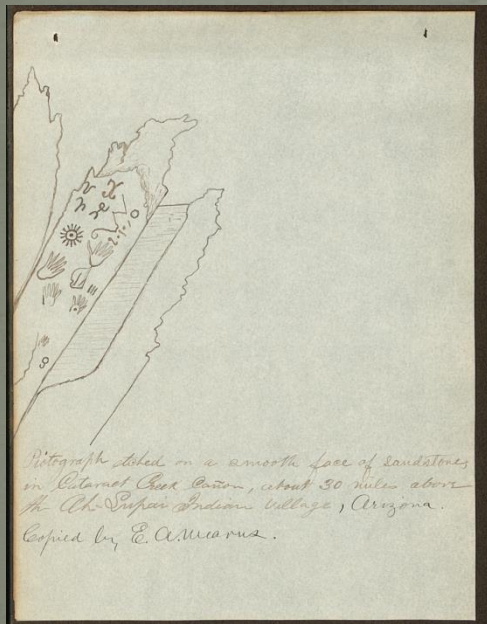 Pictograph etched on a smooth face of sandstone,
in Cataract Creek Cañon, about 30 miles above
the Ah-Supai Indian village, Arizona.
Copied by E. A. Mearns.